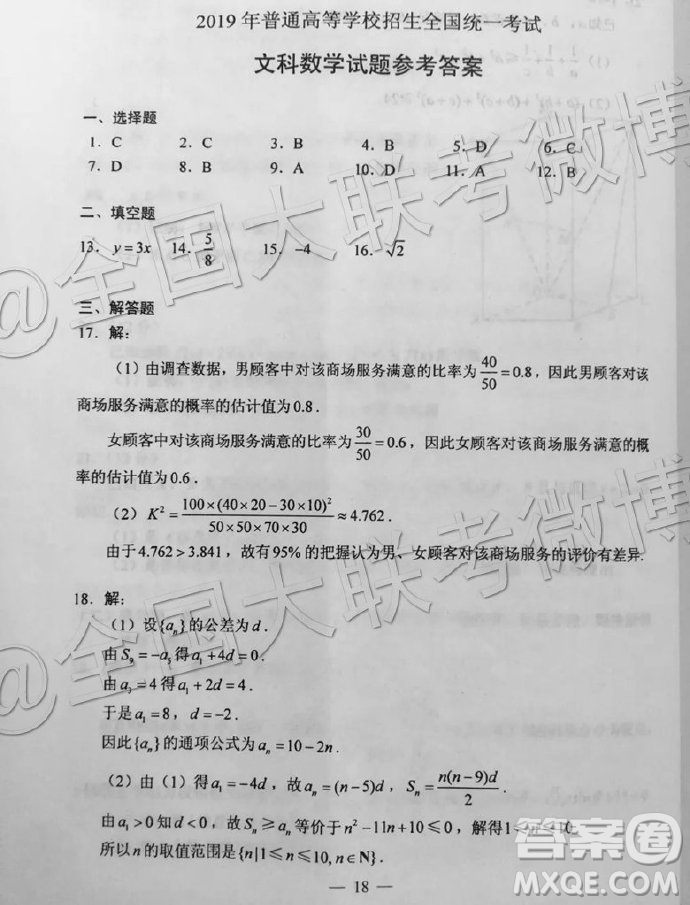 2019 年普通高等学校招生全国统一考试
文科数学试题参考答案
一、选择题
1. C 2. C 3. B 4. B 5. D 6. C
7. D 8. B 9. A 10. D 11. A 12. B
二、填空题
13. y=3x 14. 5/8 15. -4 16. √2
三、解答题
17. 解:
(1)由调查数据，男顾客中对该商场服务满意的比率为40/50=0.8，因此男顾客对该
商场服务满意的概率的估计值为0.8.
女顾客中对该商场服务满意的比率为30/50=0.6，因此女顾客对该商场服务满意的概
率的估计值为0.6.
(2) K²=100×(40×20-30×10)²/50×50×70×30≈4.762.
由于4.762>3.841，故有95%的把握认为男、女顾客对该商场服务的评价有差异.
18. 解:
(1)设{aₙ}的公差为d.
由S₉=-a₅得a₁+4d=0.
由a₃=4得a₁+2d=4.
于是a₁=8，d=-2.
因此{aₙ}的通项公式为aₙ=10-2n.
(2)由(1)得a₁=-4d，故aₙ=(n-5)d，Sₙ=n(n-9)d/2.
由a₁>0知d<0，故Sₙ≥aₙ等价于n²-11n+10≤0，解得1≤n≤10.
所以n的取值范围是{n|1≤n≤10,n∈N}.
— 18 —
@全国大联考微博
@全国大联考微博
答案圈
MXQE.COM